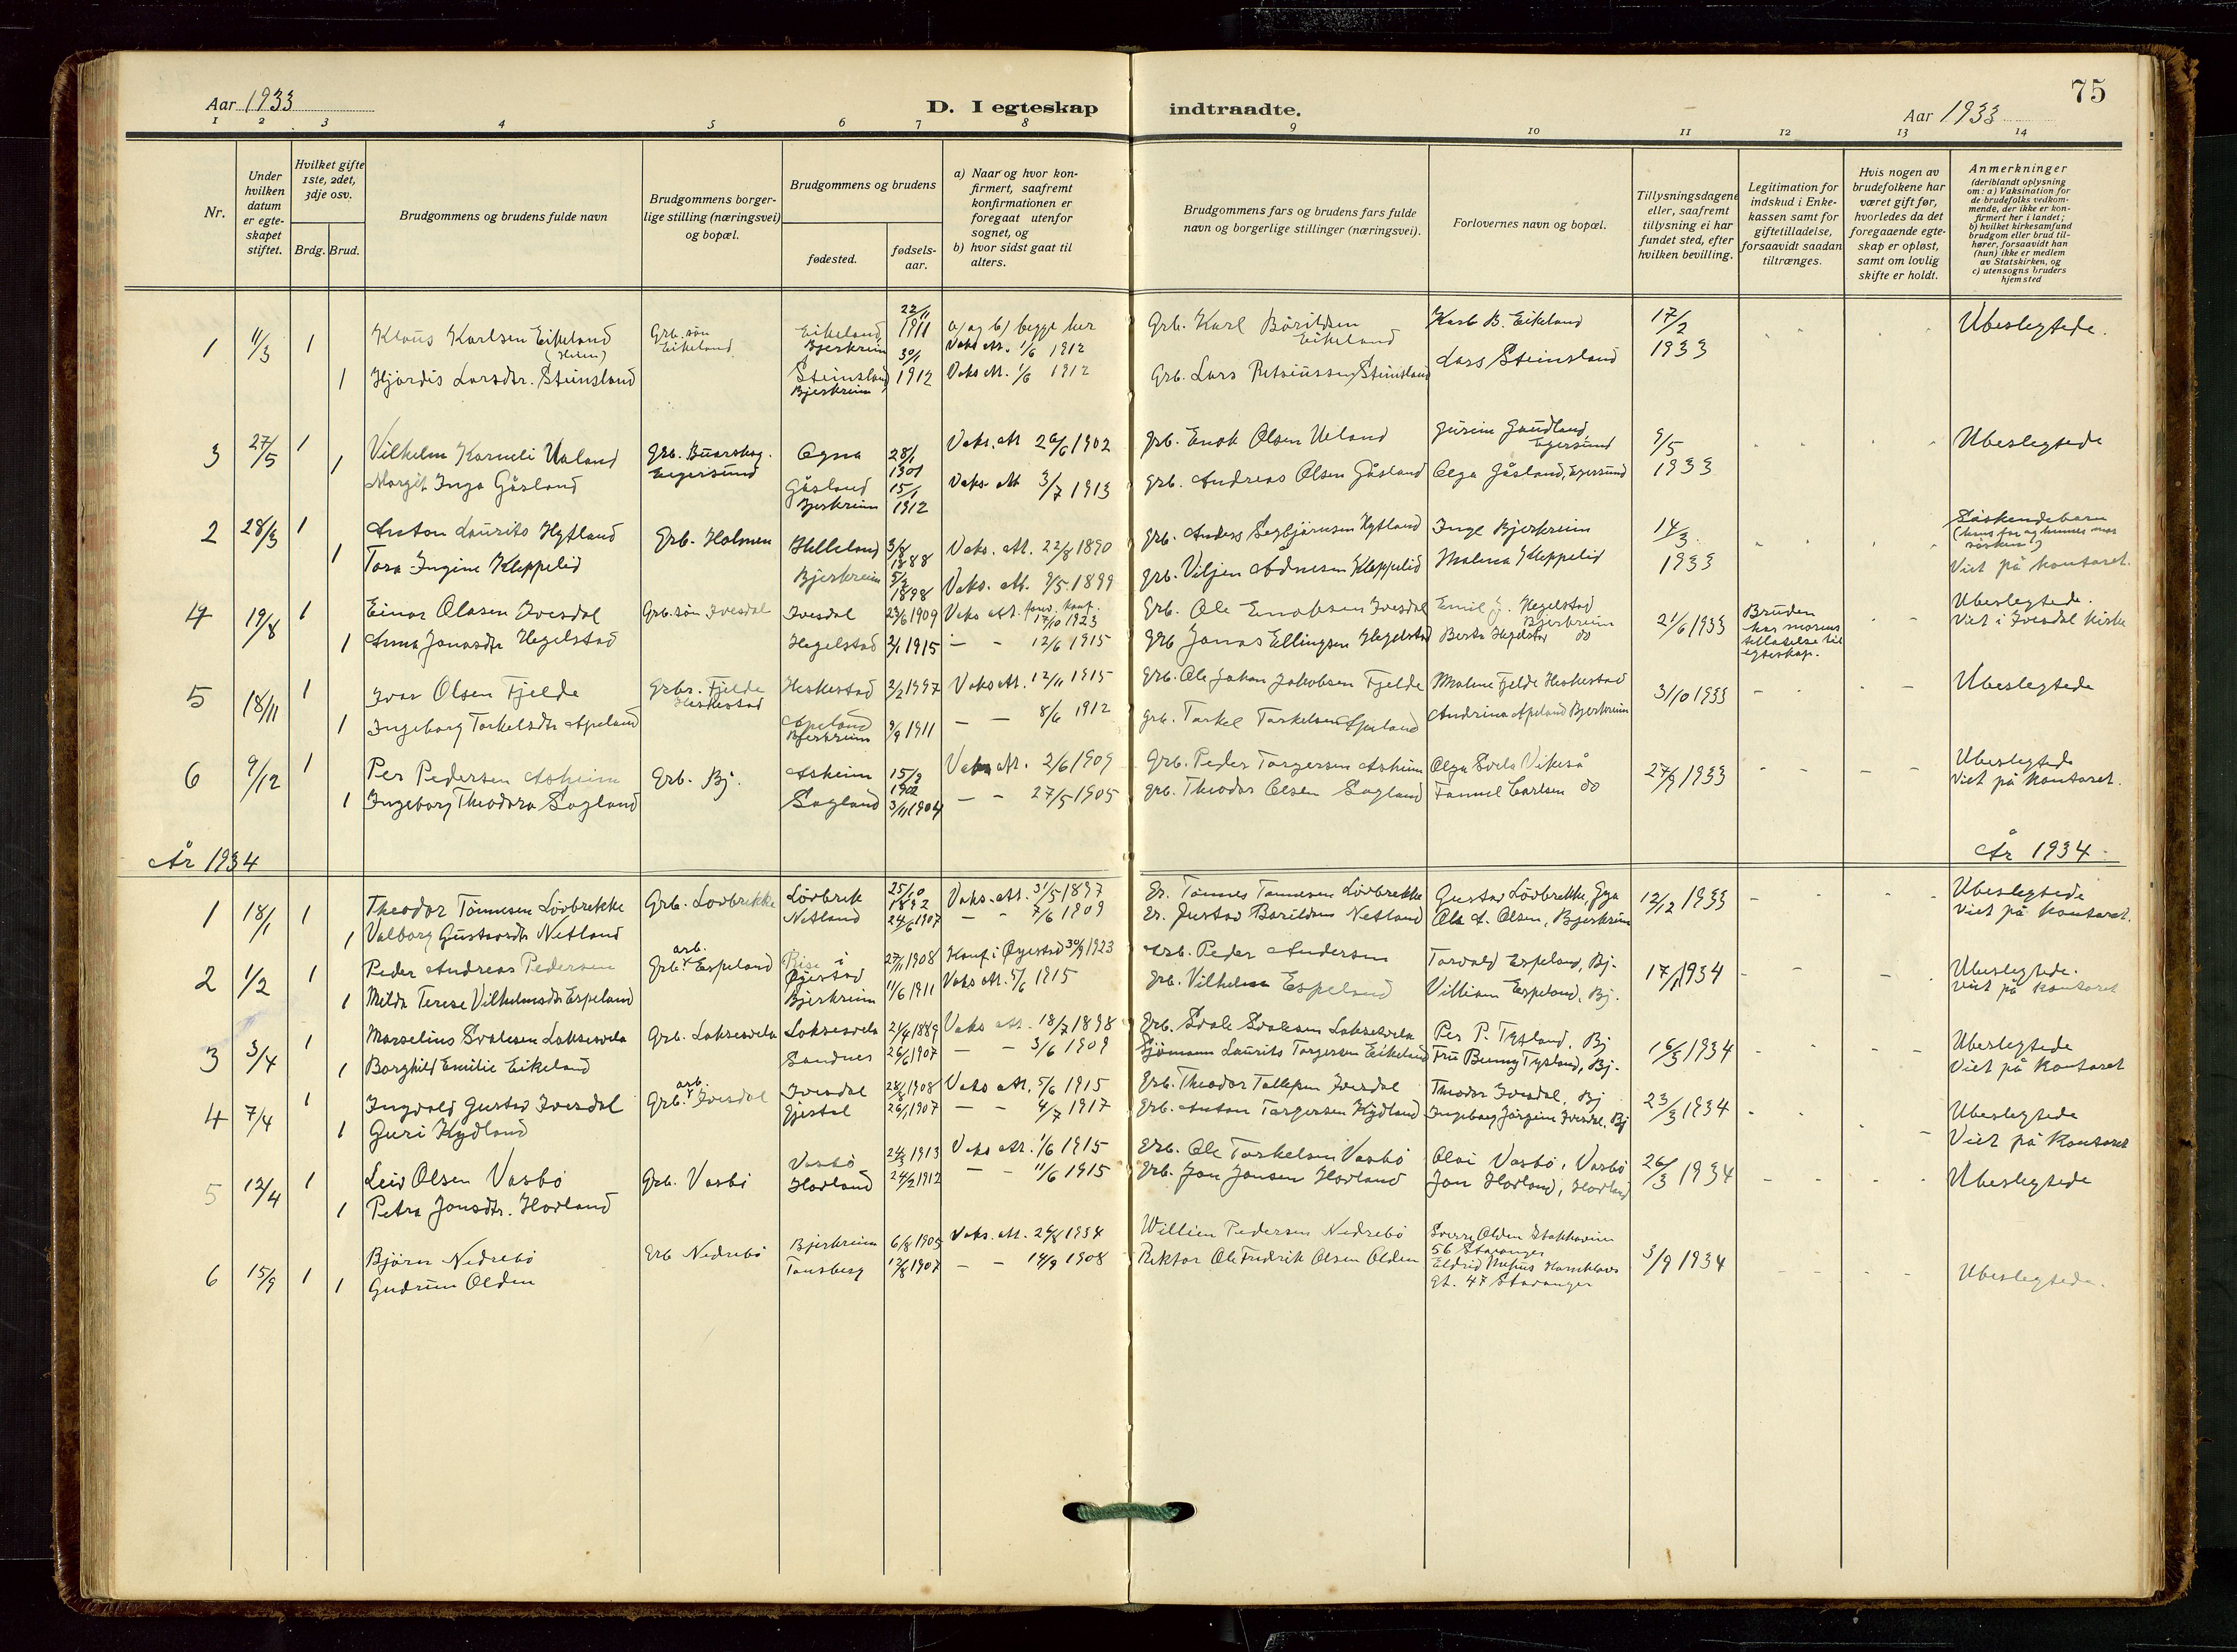 75
Aar 1933
D. I egteskap indtraadte.
Aar 1933
1 2 3 4 5 6 7 8 9 10 11 12 13 14
Nr.
Under hvilken datum er egteskapet stiftet.
Hvilket gifte 1ste, 2det, 3dje osv.
Brdg. Brud.
Brudgommens og brudens fulde navn
Brudgommens borgerlige stilling (næringsvei) og bopæl.
Brudgommens og brudens
fødested.
fødselsaar.
a) Naar og hvor konfirmert, saafremt konfirmationen er foregaat utenfor sognet, og
b) hvor sidst gaat til alters.
Brudgommens fars og brudens fars fulde navn og borgerlige stillinger (næringsvei).
Forlovernes navn og bopæl.
Tillysningsdagene eller, saafremt tillysning ei har fundet sted, efter hvilken bevilling.
Legitimation for indskud i Enkekassen samt for giftetilladelse, forsaavidt saadan tiltrænges.
Hvis nogen av brudefolkene har været gift før, hvorledes da det foregaaende egteskap er opløst, samt om lovlig skifte er holdt.
Anmerkninger
(deriblandt oplysning om: a) Vaksination for de brudefolks vedkommende, der ikke er konfirmert her i landet;
b) hvilket kirkesamfund brudgom eller brud tilhører, forsaavidt han (hun) ikke er medlem av Statskirken, og
c) utensogns bruders hjemsted
1 11/3 1 Klaus Karlsen Eikeland Grb. søn Eikeland Eikeland Bjerkreim 22/11 1911 a) og b) begge her Vaks att. 1/6 1912 Grb. Karl Bårildsen Eikeland Karl B. Eikeland 17/2 1933 Ubeslegtede.
1 Hjørdis Larsdtr. Steinsland Steinsland Bjerkreim 30/1 1912 Vaks att. 1/6 1912 Grb. Lars Steinsland Lars Steinsland
3 27/5 1 Vilhelm Korneli Ueland Grb. Egersund Ogna 28/1 1901 Vaks. att 26/6 1902 Grb. Enok Olsen Ueland Egersund 9/5 1933 Ubeslegtede
1 Margit Inga Gåsland Gåsland Bjerkreim 15/1 1912 Vaks. att 3/7 1913 Grb. Andreas Olsen Gåsland Olga Gåsland, Egersund
2 28/3 1 Anton Laurits Hytland Grb. Holmen Helleland 3/8 1888 Vaks. att. 22/8 1890 Grb. Anders Hytland Inge Bjerkreim 14/3 1933 Søskendebarn
1 Tora Ingine Kleppelid Bjerkreim 5/2 1898 Vaks. att. 9/5 1899 Grb. Viljen Ådnesen Kleppelid Malena Kleppelid Viet på kontoret.
4 19/8 1 Einar Olasen Ivesdal Grb. søn Ivesdal Ivesdal 23/6 1909 Vaks att. konf. 17/10 1923 Grb. Ole Enoksen Ivesdal Emil J. Hegelstad Bjerkreim 21/6 1933 Bruden har morens tillatelse til egteskap. Ubeslegtede.
1 Anna Jonasdtr Hegelstad Hegelstad 2/1 1915 — - 12/6 1915 Grb Jonas Ellingsen Hegelstad Berta Hegelstad do Viet i Ivesdal kirke
5 18/11 1 Ivar Olsen Fjelde Grbr. Fjelde Heskestad Heskestad 2/2 1897 Vaks att. 12/11 1915 Grb. Ole Johan Jakobsen Fjelde Malene Fjelde Heskestad 3/10 1933 Ubeslegtede
1 Ingeborg Torkelsdtr Apeland Apeland Bjerkreim 9/9 1911 — - 8/6 1912 Grb. Torkel Torkelsen Apeland Andrina Apeland Bjerkreim
6 9/12 1 Per Pedersen Asheim Grb. Bj. Asheim 15/2 1902 Vaks att. 2/6 1909 Grb. Peder Torgersen Asheim Olga Svela Vikeså 27/9 1933 Ubeslegtede
1 Ingeborg Theodora Sagland Sagland 3/11 1904 — - 27/5 1905 Grb. Theodor Olsen Sagland Carlsen do Viet på kontoret.
År 1934
År 1934
1 18/1 1 Theodor Tønnesen Løvbrekke Grb. Løvbrekke Løvbrek 25/10 1892 Vaks. att. 31/5 1897 Gr. Tønnes Tønnesen Løvbrekke Gustav Løvbrekke, Gya 12/12 1933 Ubeslegtede
1 Valborg Gustavsdtr Netland Netland 24/6 1907 — - 7/6 1909 Gr. Gustav Barildsen Netland Ole A. Olsen, Bjerkreim Viet på kontoret.
2 1/2 1 Peder Andreas Pedersen Grb. arb. Espeland Rise i Øyestad 27/11 1908 Konf i Øyestad 30/9 1923 Grb. Peder Andersen Torvald Espeland, Bj. 17/1 1934 Ubeslegtede.
1 Milda Terese Vilhelmsdtr Espeland Bjerkreim 11/6 1911 Vaks att. 5/6 1915 Grb. Vilhelm Espeland William Espeland, Bj. Viet på kontoret
3 3/4 1 Marselius Svalesen Laksesvela Grb. Laksesvela Laksesvela 21/4 1889 Vaks att. 18/7 1898 Grb. Svale Svalesen Laksesvela Per P. Tytland, Bj 16/3 1934 Ubeslegtede
1 Borghild Emilie Eikeland Sandnes 26/6 1907 — - 3/6 1909 Sjømann Laurits Torgersen Eikeland Fru Tytland, Bj. Viet på kontoret
4 7/4 1 Ingvald Gustav Ivesdal Grb. arb. Ivesdal Ivesdal 28/8 1908 Vaks att. 5/6 1915 Grb. Theodor Tollefsen Ivesdal Theodor Ivesdal, Bj 23/3 1934 Ubeslegtede
1 Guri Kydland Gjestal 26/1 1907 — - 4/7 1917 Grb. Anton Torgersen Kydland Ingeborg Jørgine Ivesdal, Bj Viet på kontoret
5 12/4 1 Leiv Olsen Vasbø Grb. Vasbø Vasbø 24/3 1913 Vaks att. 1/6 1915 Grb. Ole Torkelsen Vasbø Olai Vasbø, Vasbø 26/3 1934 Ubeslegtede
1 Petra Jonsdtr. Hovland Hovland 24/2 1912 — - 11/6 1915 Grb. Jon Jonsen Hovland Jon Hovland, Hovland
6 15/9 1 Bjørn Nedrebø Grb Nedrebø Bjerkreim 6/8 1905 Vaks. att. 26/8 1934 Willien Pedersen Nedrebø Sverre Olden 56 Stavanger 3/9 1934 Ubeslegtede.
1 Gudrun Olden Tønsberg 12/8 1907 — - 14/9 1908 Rektor Ole Fredrik Olsen Olden Eldrid gt. 47 Stavanger